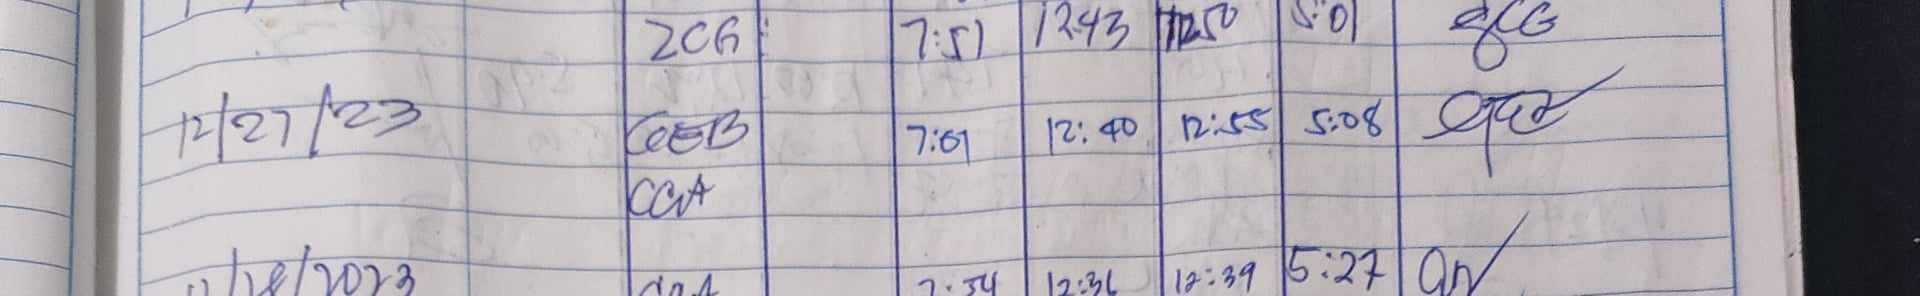 ZCG : 7:51 12:43 12:50 5:01
12/27/23 GEB 7:01 12:40 12:55 5:08
CGA
12/28/2023 7:54 12:36 12:39 5:27